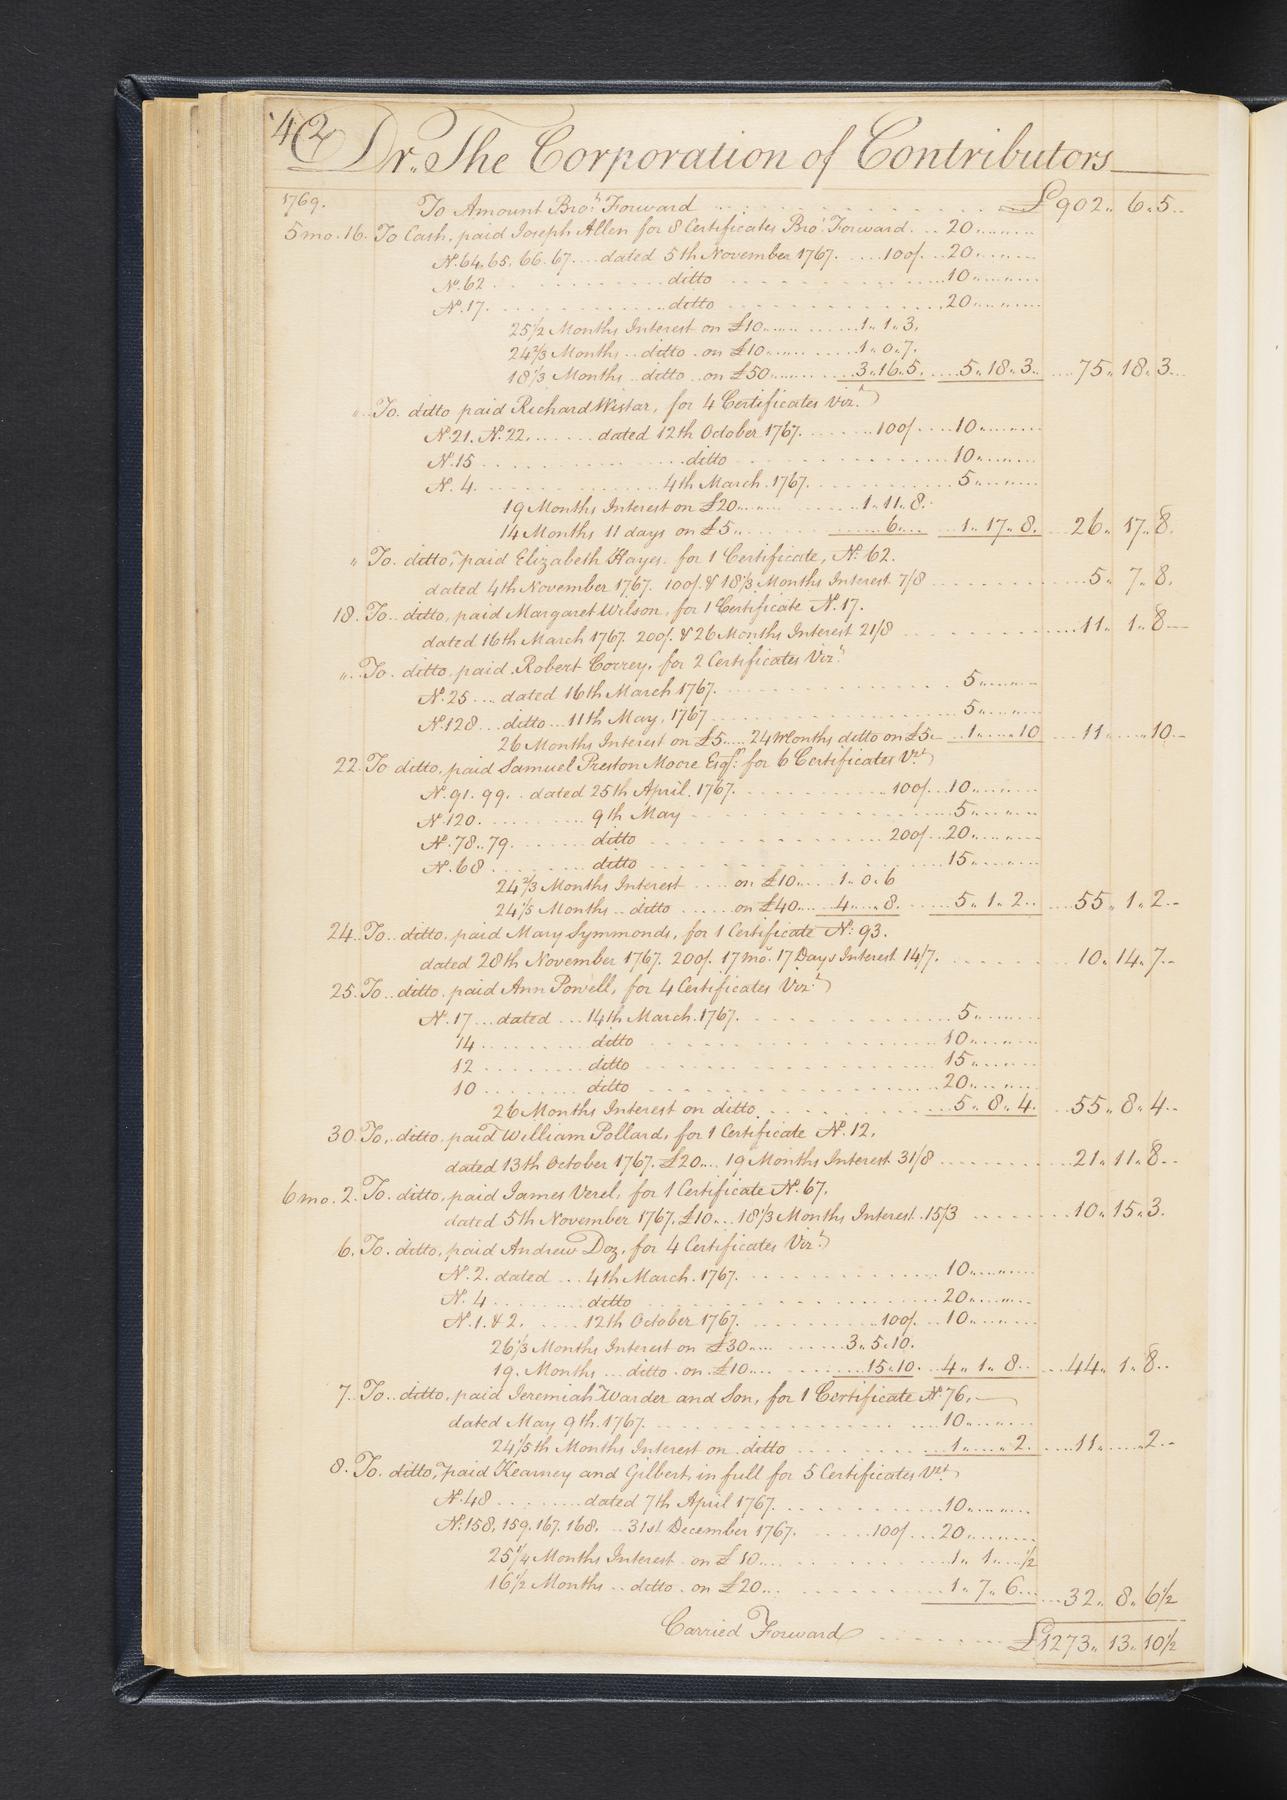 42 Dr. The Corporation of Contributors
1769. To Amount Bro.t Forward £902.. 6.. 5..
5 mo. 16. To Cash, paid Joseph Allen for 8 Certificates Bro.t Forward. 20..
N. 64. 65. 66. 67. dated 5th November 1767. 100/. 20..
No. 62 ditto 10..
No. 17. ditto 20..
25 1/2 Months Interest on £10.. 1.. 1.. 3.
24 2/3 Months .. ditto. on £10.. 1.. 0.. 7.
18 1/3 Months .. ditto .. on £50.. 3.. 16.. 5. 5.. 18.. 3.. 75.. 18.. 3..
.. To. ditto paid Richard Wistar, for 4 Certificates Viz.t
No. 21. No. 22. dated 12th October 1767. 100/. 10..
No. 15 ditto 10..
No. 4. 4th March. 1767. 5..
19 Months Interest on £20.. 1.. 11.. 8.
14 Months 11 days on £5.. 6.. 1.. 17.. 8. 26.. 17.. 8.
.. To ditto, paid Elizabeth Hayes. for 1 Certificate, No. 62.
dated 4th November 1767. 100/. & 18 1/3 Months Interest 7/8 5.. 7.. 8.
18. To.. ditto, paid Margaret Wilson, for 1 Certificate No. 17.
dated 16th March 1767. 200/. & 26 Months Interest 21/8 11.. 1.. 8
.. To. ditto, paid. Robert Correy, for 2 Certificates Viz.t
No. 25 .... dated 16th March 1767. 5..
No. 128 ... ditto ... 11th May, 1767 5..
26 Months Interest on £5.. 24 Months ditto on £5.. 1.. .. 10 11.. .. 10
22. To ditto, paid Samuel Preston Moore Esq.r for 6 Certificates Vi.t
No. 91. 99. dated 25th April. 1767. 100/. 10..
No. 120. 9th May 5..
No. 78.. 79. ditto 200/. 20..
No. 68 ditto 15..
24 2/3 Months Interest on £10.. 1.. 0.. 6
24 1/5 Months .. ditto on £40.. 4.. .. 8. 5.. 1.. 2.. 55.. 1.. 2..
24. To.. ditto, paid Mary Symmonds, for 1 Certificate No. 93.
dated 28th November 1767. 200/. 17 mo. 17 Days Interest 14/7. 10.. 14.. 7..
25. To.. ditto. paid Ann Powell, for 4 Certificates Viz.t
No. 17 ... dated ... 14th March. 1767. 5..
14 ditto 10..
12 ditto 15..
10 ditto 20..
26 Months Interest on ditto. 5.. 8.. 4. 55.. 8.. 4..
30. To.. ditto. paid William Pollard, for 1 Certificate No. 12.
dated 13th October 1767. £20.. 19 Months Interest 31/8 21.. 11.. 8..
6 mo. 2. To. ditto, paid James Verel, for 1 Certificate No. 67.
dated 5th November 1767. £10.. 18 1/3 Months Interest. 15/3 10.. 15.. 3.
6. To. ditto, paid Andrew Doz, for 4 Certificates Viz.t
No. 2. dated ... 4th March. 1767. 10..
No. 4 ditto 20..
No. 1. & 2. 12th October 1767. 100/. 10..
26 1/3 Months Interest on £30.. 3.. 5.. 10.
19. Months ... ditto. on. £10.. 15.. 10. 4.. 1.. 8.. 44.. 1.. 8..
7. To.. ditto, paid Jeremiah Warder and Son, for 1 Certificate No. 76.
dated May 9th. 1767. 10..
24 1/5th Months Interest on ditto 1.. .. 2. 11.. .. 2..
8. To. ditto, paid Kearney and Gilbert, in full for 5 Certificates Viz.t
No. 48 dated 7th April 1767. 10..
No. 158, 159. 167. 168. 31st December 1767. 100/. 20..
25 1/4 Months Interest. on £10.. 1.. 1.. 1/2
16 1/2 Months .. ditto. on £20.. 1.. 7.. 6.. 32.. 8.. 6 1/2
Carried Forward £1273.. 13.. 10 1/2